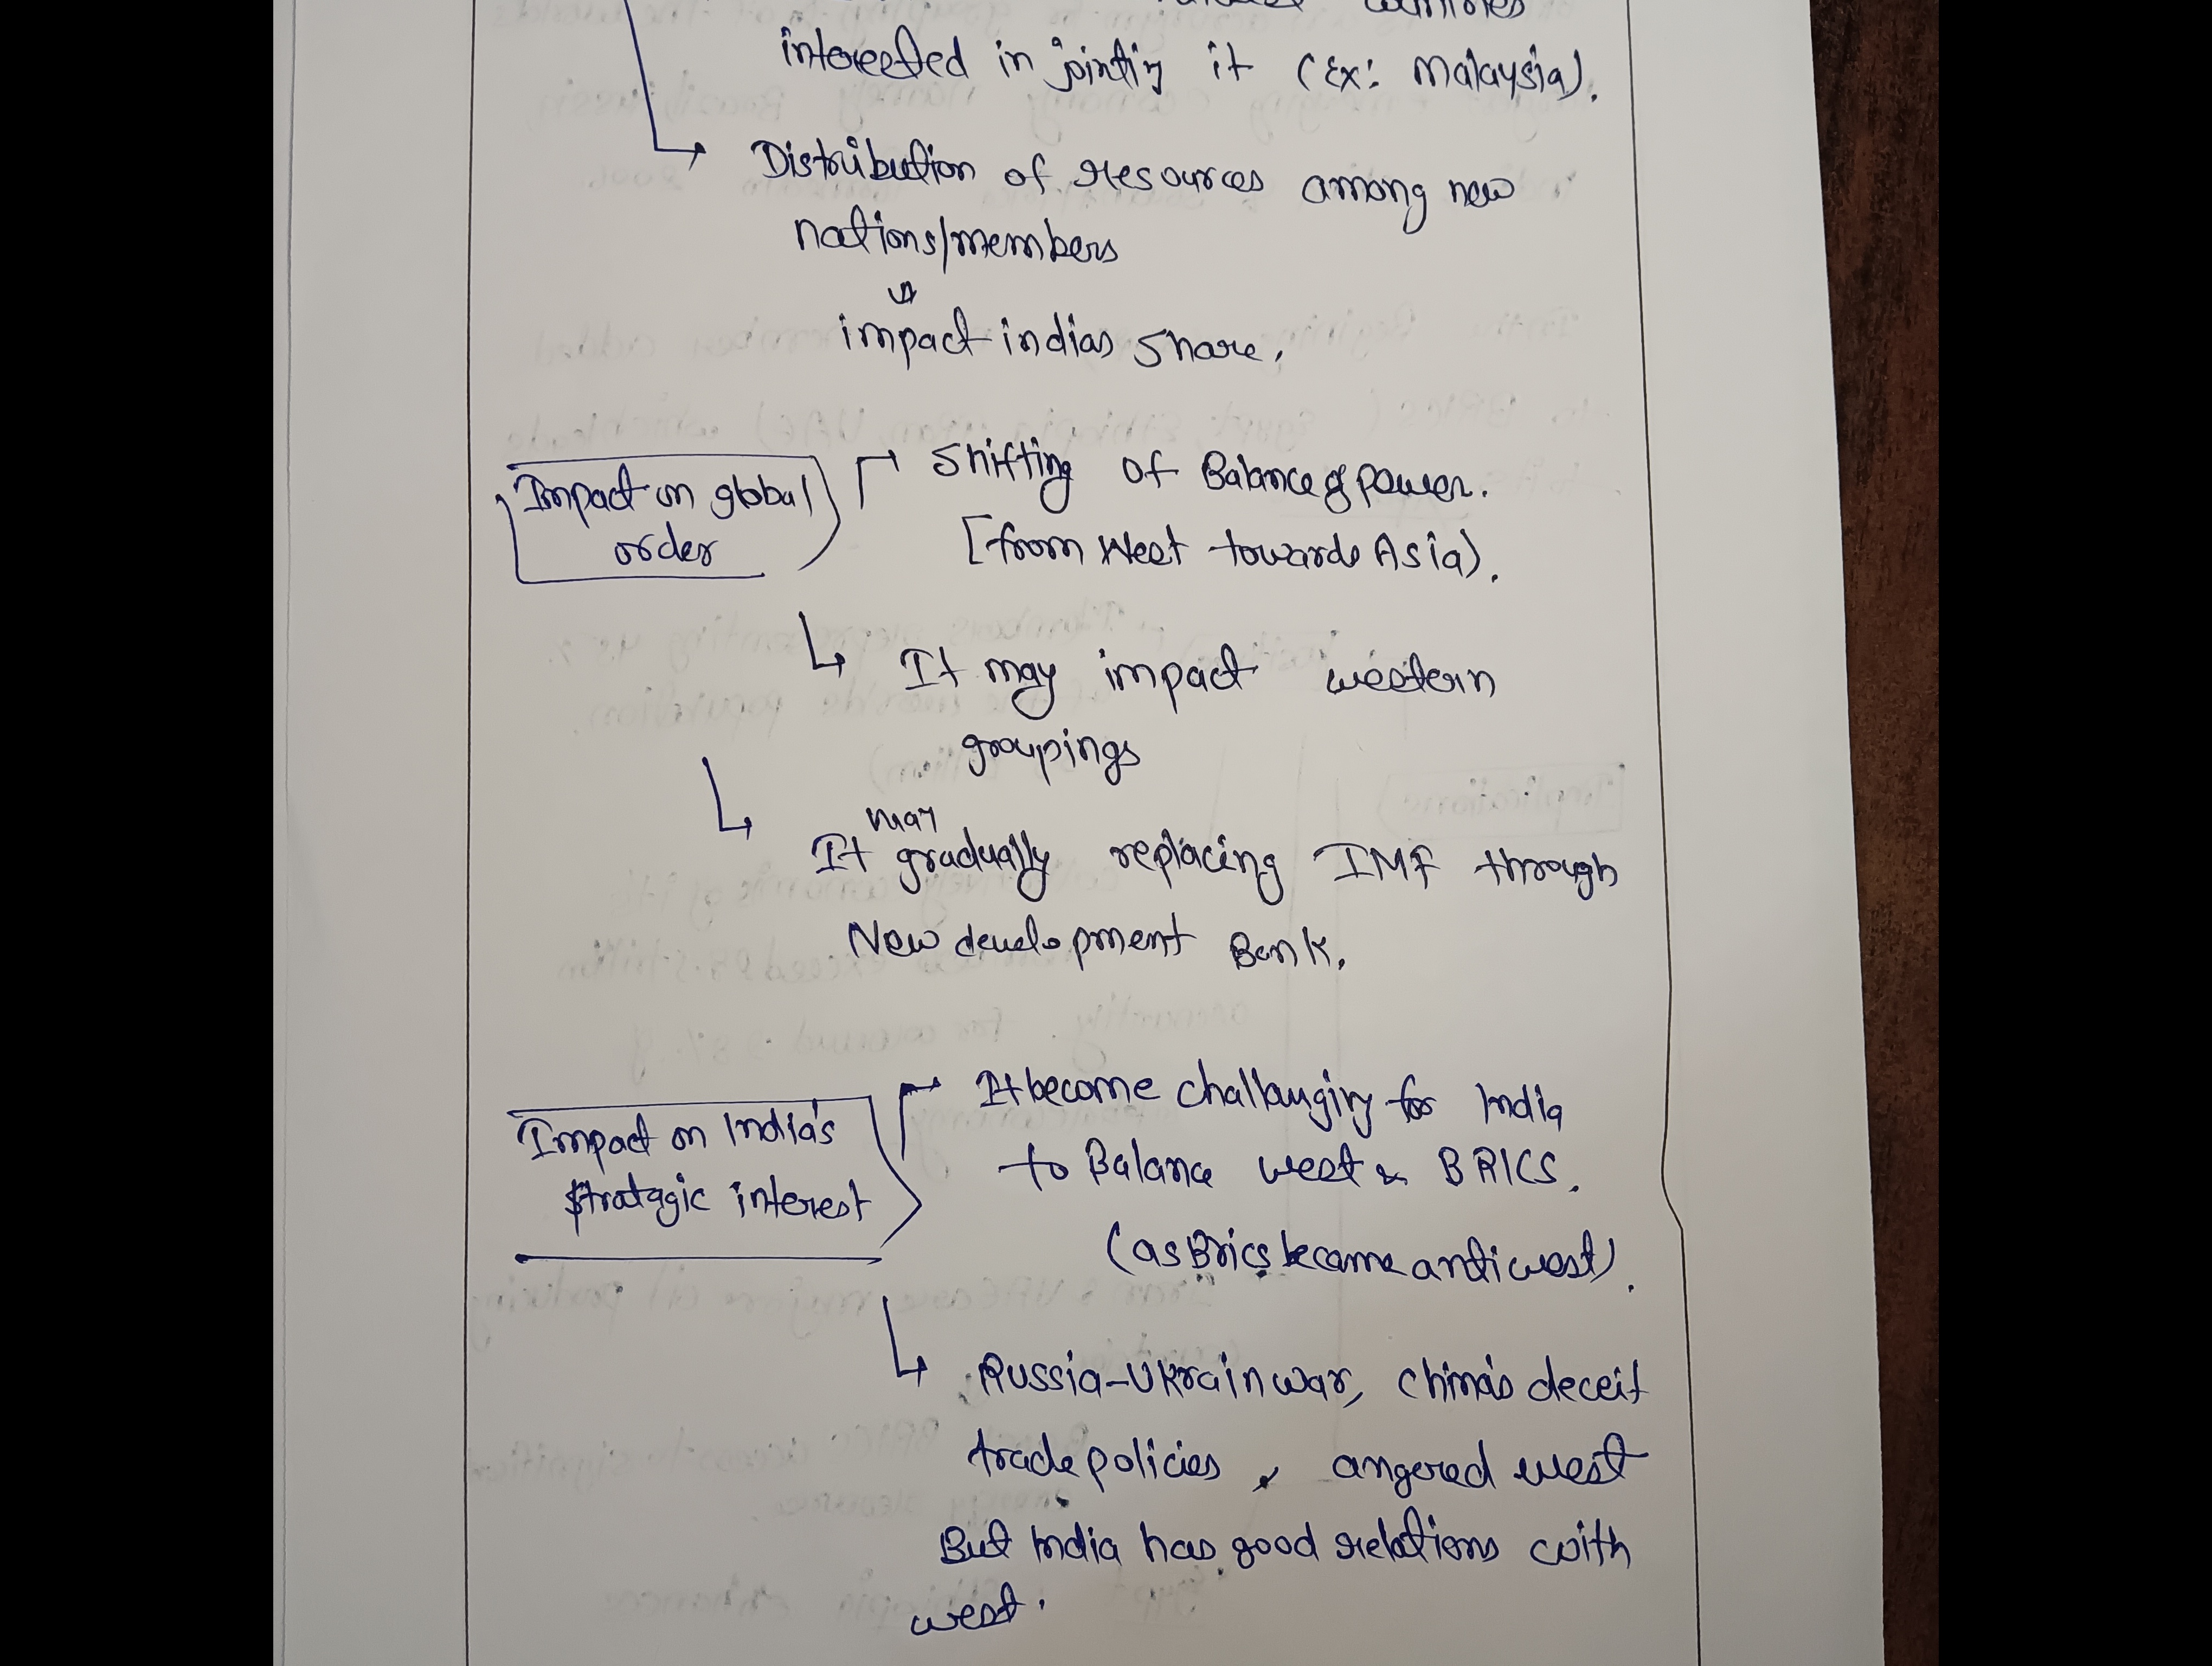 countries
interested in jointing it (Ex: Malaysia).
Distribution of resources among new
nations/members
impact indias share.
Impact on global
order
Shifting of Balance of power.
[from West towards Asia).
It may impact western
groupings
may
It gradually replacing IMF through
New development Bank.
Impact on India's
stratagic interest
It become challanging for India
to Balance west & BRICS.
(as Brics became anti west).
Russia-Ukrain war, china's deceit
trade policies, angered west
But India has good relations with
west.